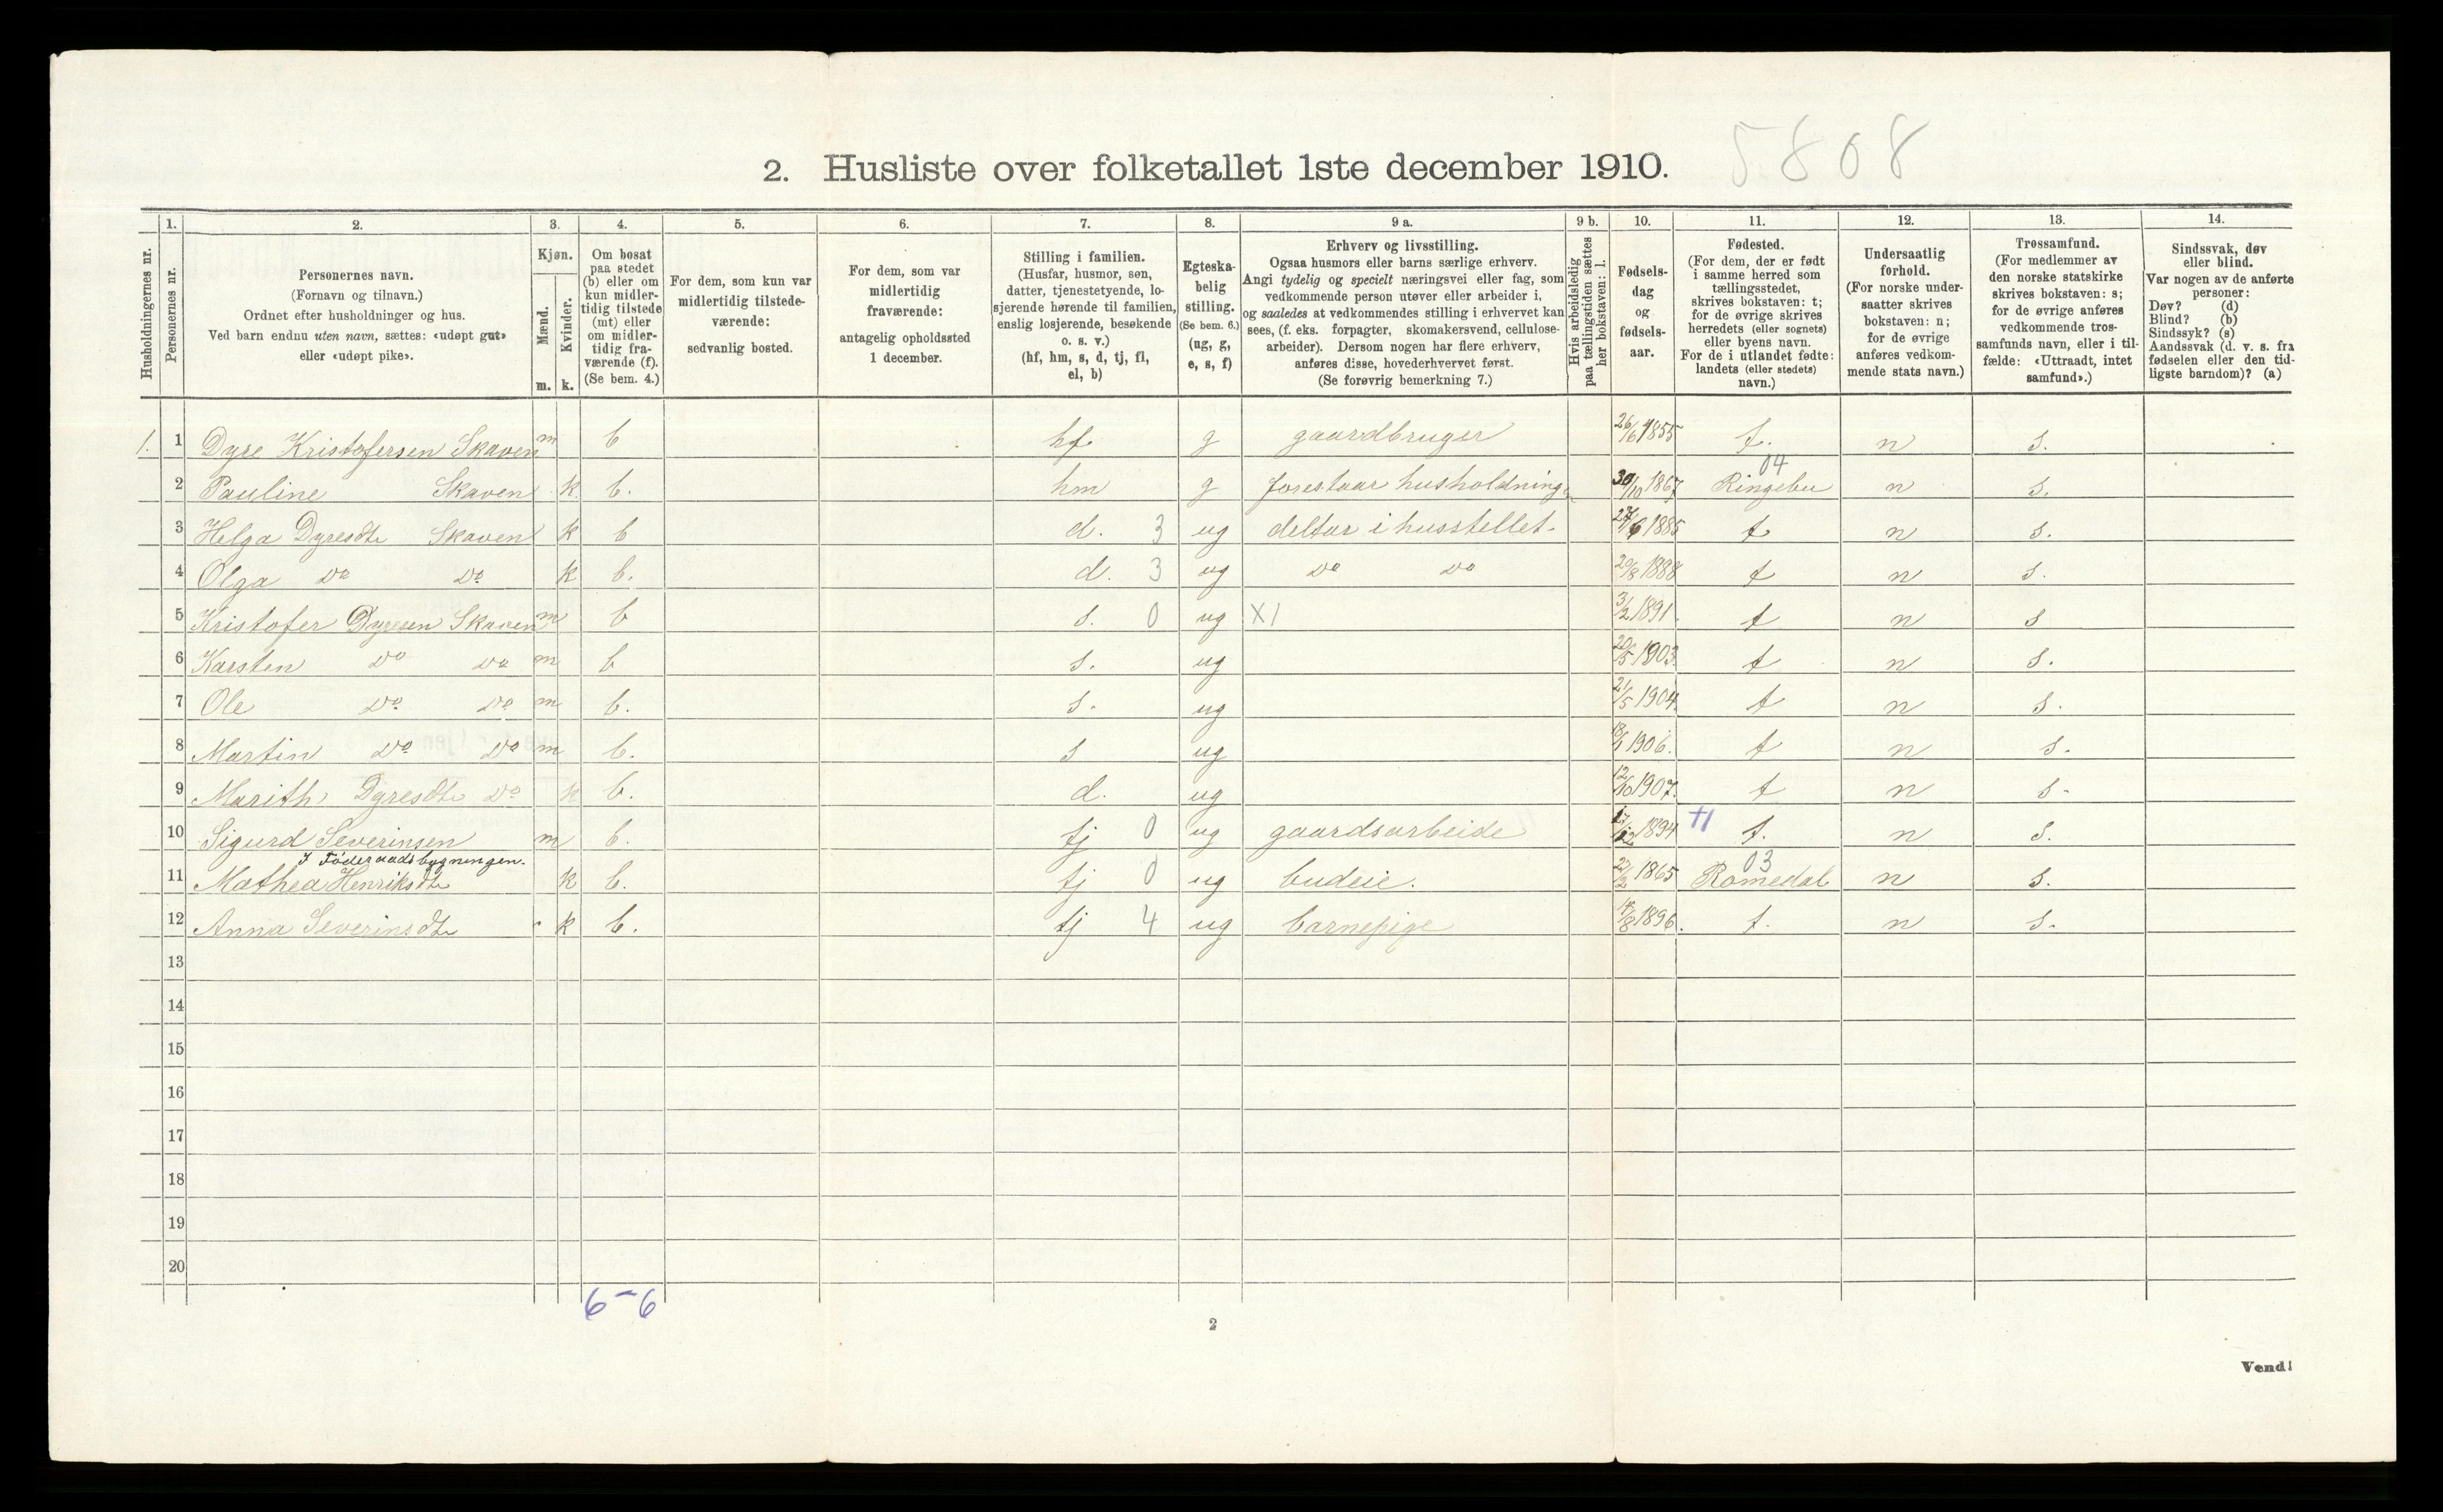 5808
2. Husliste over folketallet 1ste december 1910.
1. 2. 3. 4. 5. 6. 7. 8. 9 a. 9 b. 10. 11. 12. 13. 14.
Husholdningernes nr.
Personernes nr.
Personernes navn.
(Fornavn og tilnavn.)
Ordnet efter husholdninger og hus.
Ved barn endnu uten navn, sættes: «udøpt gut»
eller «udøpt pike».
Kjøn.
Mænd.
Kvinder.
m. k.
Om bosat
paa stedet
(b) eller om
kun midler-
tidig tilstede
(mt) eller
om midler-
tidig fra-
værende (f).
(Se bem. 4.)
For dem, som kun var
midlertidig tilstede-
værende:
sedvanlig bosted.
For dem, som var
midlertidig
fraværende:
antagelig opholdssted
1 december.
Stilling i familien.
(Husfar, husmor, søn,
datter, tjenestetyende, lo-
sjerende hørende til familien,
enslig losjerende, besøkende
o. s. v.)
(hf, hm, s, d, tj, fl,
el, b)
Egteska-
belig
stilling.
(Se bem. 6.)
(ug, g,
e, s, f)
Erhverv og livsstilling.
Ogsaa husmors eller barns særlige erhverv.
Angi tydelig og specielt næringsvei eller fag, som
vedkommende person utøver eller arbeider i,
og saaledes at vedkommendes stilling i erhvervet kan
sees, (f. eks. forpagter, skomakersvend, cellulose-
arbeider). Dersom nogen har flere erhverv,
anføres disse, hovederhvervet først.
(Se forøvrig bemerkning 7.)
Hvis arbeidsledig
paa tællingstiden sættes
her bokstaven: l.
Fødsels-
dag
og
fødsels-
aar.
Fødested.
(For dem, der er født
i samme herred som
tællingsstedet,
skrives bokstaven: t;
for de øvrige skrives
herredets (eller sognets)
eller byens navn.
For de i utlandet fødte:
landets (eller stedets)
navn.)
Undersaatlig
forhold.
(For norske under-
saatter skrives
bokstaven: n;
for de øvrige
anføres vedkom-
mende stats navn.)
Trossamfund.
(For medlemmer av
den norske statskirke
skrives bokstaven: s;
for de øvrige anføres
vedkommende tros-
samfunds navn, eller i til-
fælde: «Uttraadt, intet
samfund».)
Sindssvak, døv
eller blind.
Var nogen av de anførte
personer:
Døv? (d)
Blind? (b)
Sindssyk? (s)
Aandssvak (d. v. s. fra
fødselen eller den tid-
ligste barndom)? (a)
1. 1 Dyre Kristofersen Skaven m b hf g gaardbruger 26/6 1855 t. n s.
04
2 Pauline Skaven k b. hm g forestaar husholdning 30/10 1867 Ringebu n s.
3 Helga Dyresdtr Skaven k b d. 3 ug deltar i husstellet. 27/6 1885 t n s.
4 Olga Do Do k b. d. 3 ug Do Do 29/8 1888 t n s.
5 Kristofer Dyresen Skaven m b s. 0 ug X1 3/2 1891. t n s
6 Karsten Do Do m b s. ug 20/5 1903. t n s.
7 Ole Do Do m b. s. ug 21/5 1904. t n s.
8 Martin Do Do m b. s ug 1906. t n s.
9 Marith Dyresdtr Do k b. d. ug 12/10 1907. t n s.
10 Sigurd Severinsen m b. tj 0 ug gaardsarbeide 17/12 1894 t. n s.
I Föderaadsbygningen.
03
11 Mathea Henriksdtr k b. tj 0 ug budeie. 22/2 1865 Romedal n s.
12 Anna Severinsdtr k b. tj 4 ug barnepige 1896. t. n s.
13
14
15
16
17
18
19
20
6 - 6
2
Vend!